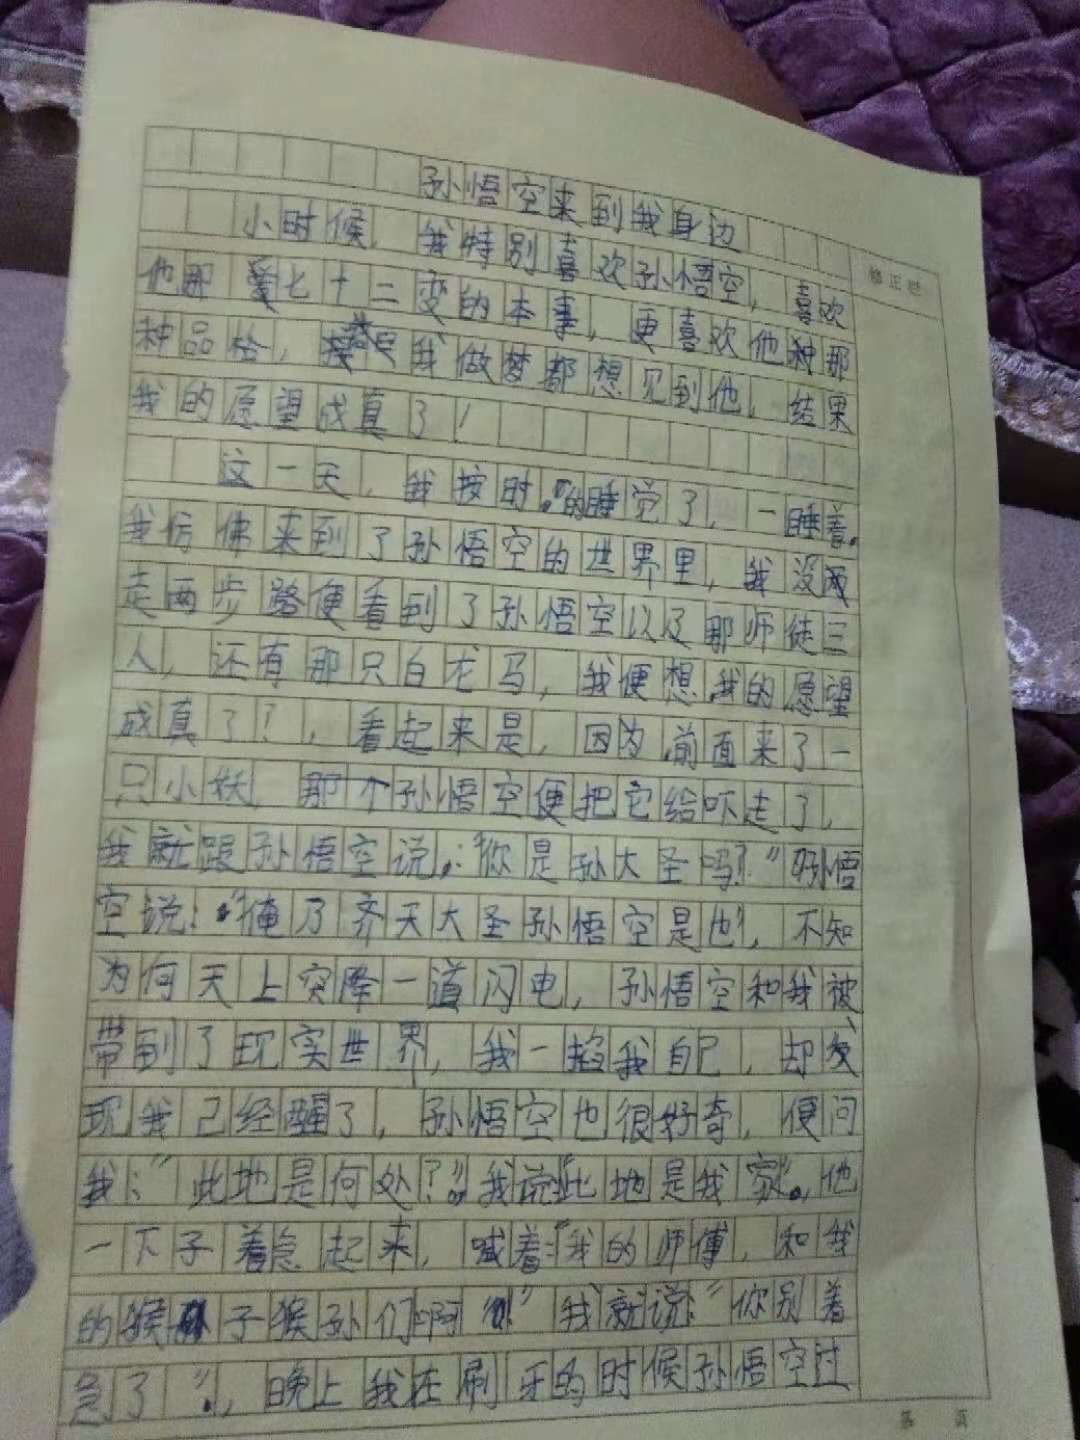 孙悟空来到我身边
修正栏
小时候,我特别喜欢孙悟空,喜欢
他那 七十二变的本事,更喜欢他种那
种品格, 我做梦都想见到他,结果
我的愿望成真了!
这一天,我按时的睡觉了,一睡着,
我仿佛来到了孙悟空的世界里,我没
走两步路便看到了孙悟空以及那师徒三
人,还有那只白龙马,我便想我的愿望
成真了?,看起来是,因为前面来了一
只小妖,那个孙悟空便把它给吓走了,
我就跟孙悟空说:“你是孙大圣吗?”孙悟
空说:“俺乃齐天大圣孙悟空是也”,不知
为何天上突降一道闪电,孙悟空和我被
带到了现实世界,我一掐我自己,却发
现我已经醒了,孙悟空也很好奇,便问
我:“此地是何处?”,我说“此地是我家”,他
一下子着急起来,喊着:“我的师傅,和我
的猴子猴孙们啊!”我就说:“你别着
急了”,晚上我在刷牙的时候孙悟空过
第 页